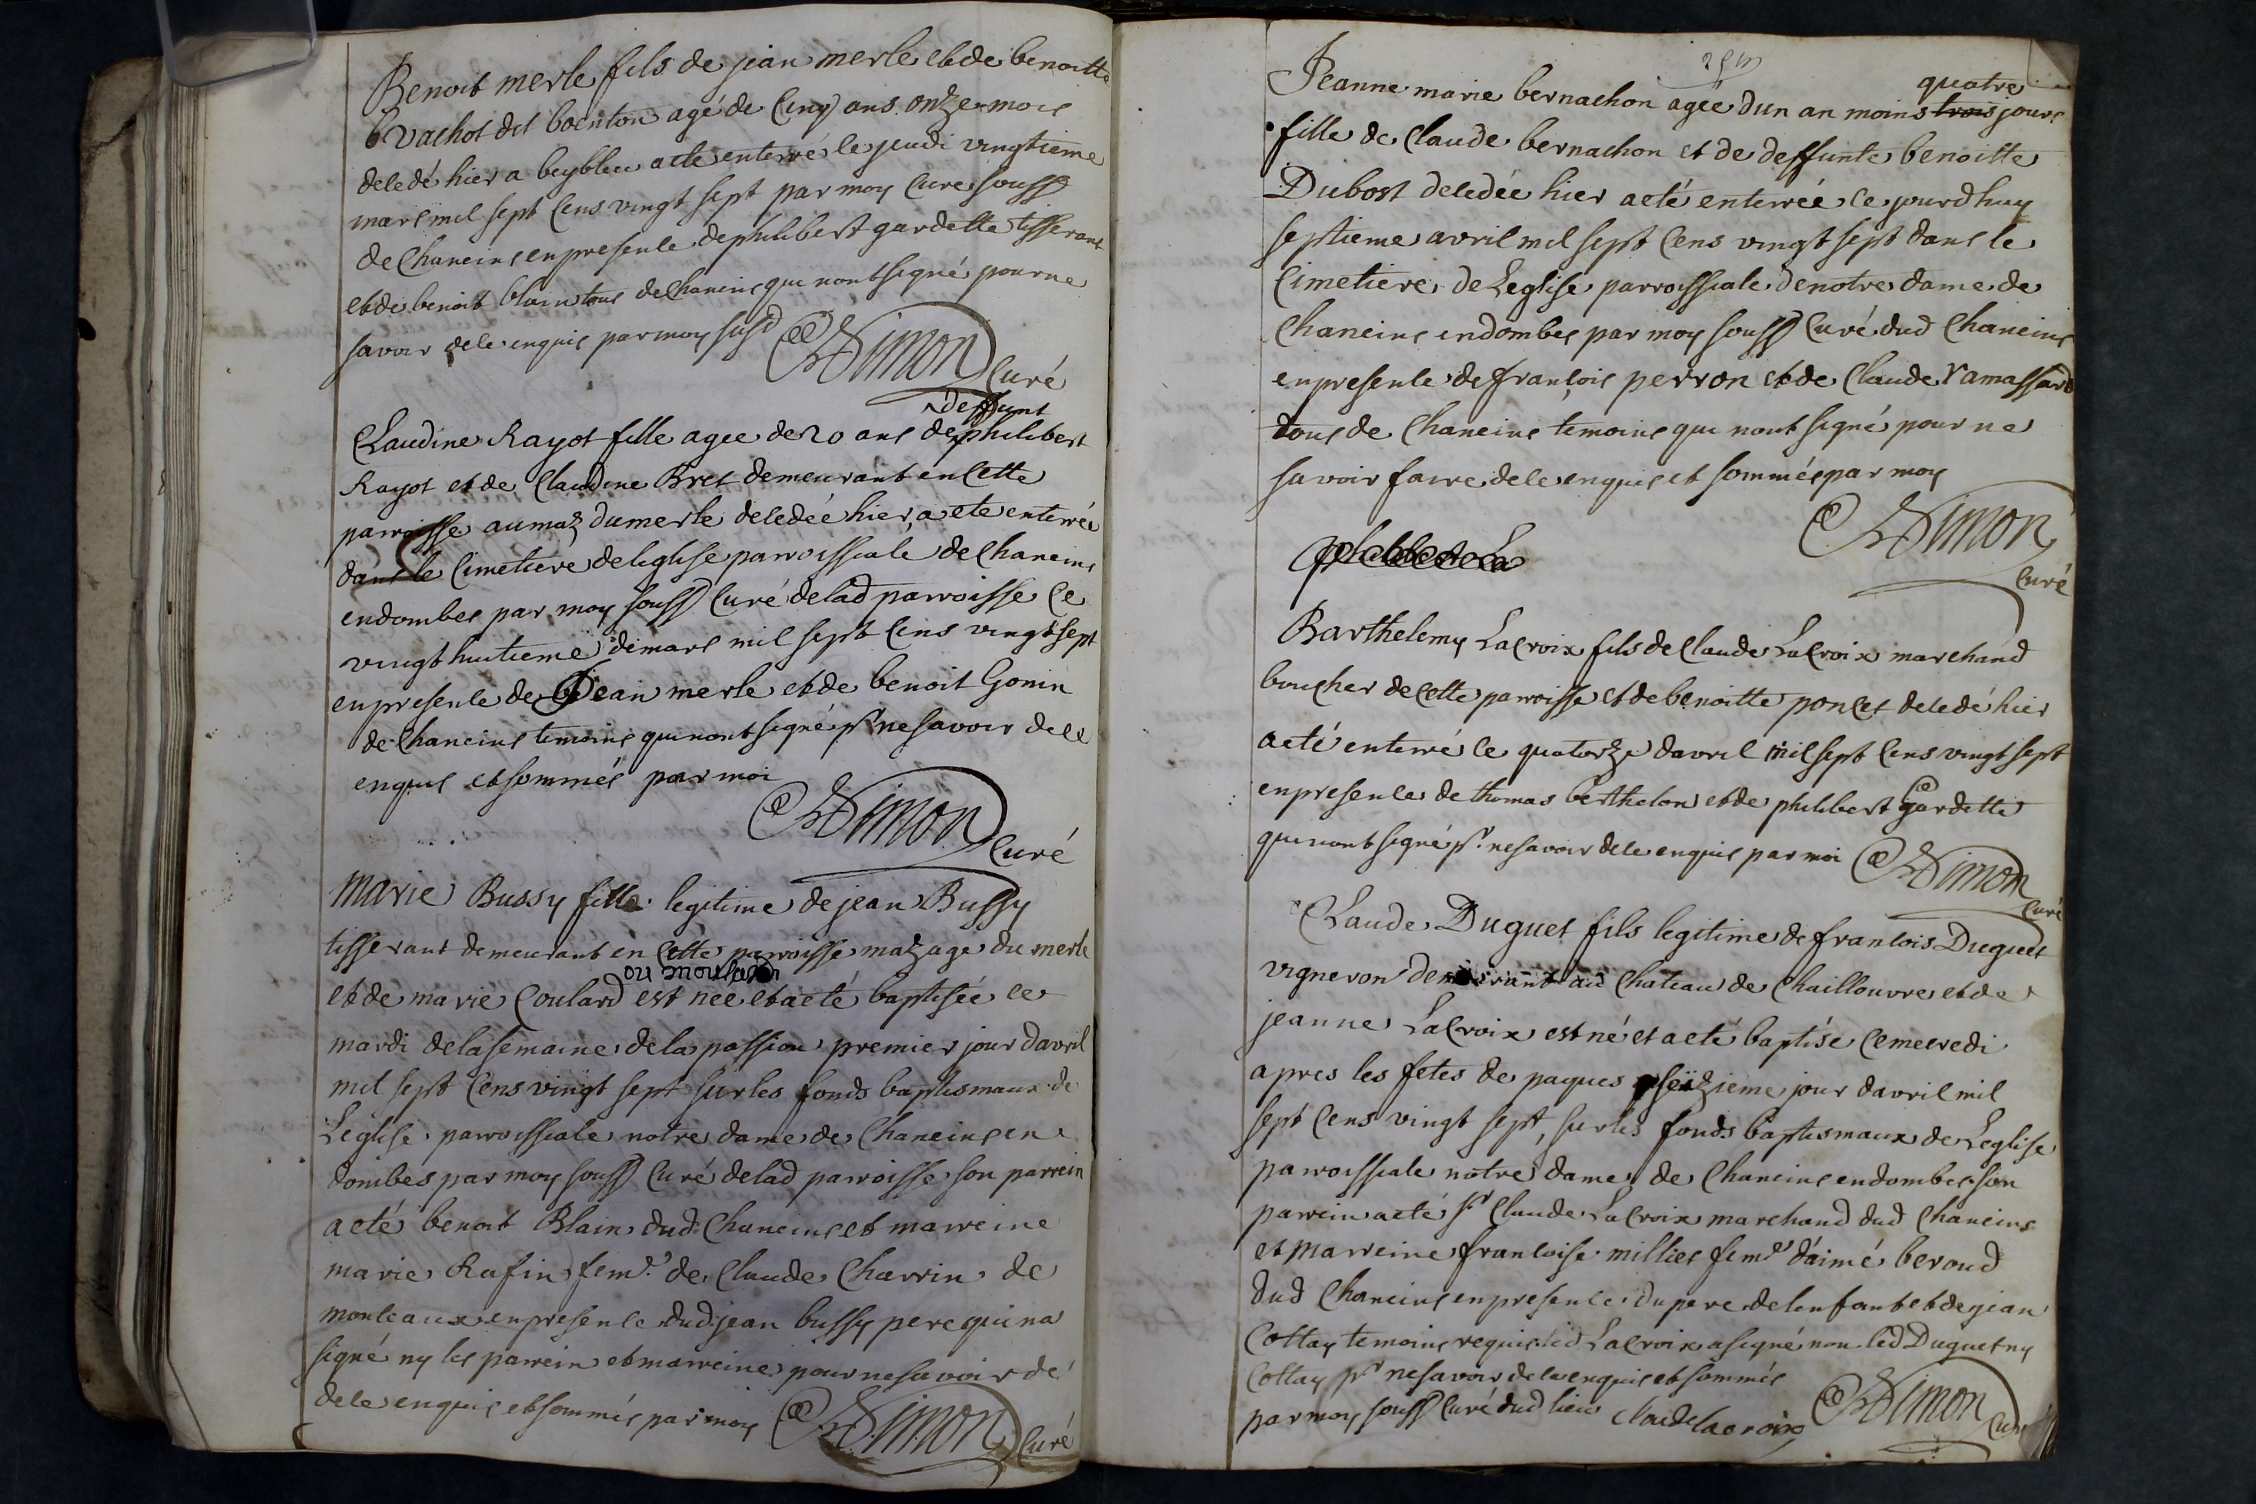 Benoit merle fils de jean merle et de benoitte
Vachot dit boenton agé de Cinq ans onze mois
decedé hier a beybleu a ete enterré le jeudi vingtieme
mars mil sept Cens vingt sept par moy Curé souss
de Chaneins en presence de philibert gardette tisserant
et de benoit blain tous de Chaneins qui nont signé pour ne
savoir de ce enquis par moy susd
Simon
Curé
deffunt
Claudine Rayot fille agee de 20 ans de philibert
Rayot et de Claudine Bret demeurant en Cette
parroisse au maz du merle decedée hier, a ete enterrée
dans le Cimetiere de leglise parroissiale de Chaneins
en dombes par moy souss Curé de lad parroisse Ce
vingt huitieme de mars mil sept Cens vingt sept
en presence de Jean merle et de benoit Gonin
de Chaneins temoins qui nont signé pr ne savoir de ce
enquis et sommés par moi
Simon
Curé
Marie Bussy fille legitime de jean Bussy
tisserant demeurant en Cette parroisse mazage du merle
ou moulard
et de marie Coulard est née et a eté baptisée ce
mardi de la semaine de la passion premier jour davril
mil sept Cens vingt sept sur les fonds baptismaux de
Leglise parroissiale notre dame de Chaneins en
dombes par moy souss Curé de lad parroisse son parrein
a eté benoit Blain dud Chaneins et marreine
marie Rafin fem.e de Claude Charrin de
monteaux en presence dud jean bussy pere qui na
signé ny les parrein et marreine pour ne savoir de
de ce enquis et sommés par moy
Simon
Curé
Jeanne marie bernachon agée dun an moins trois jours
quatre
fille de Claude bernachon et de deffunte benoitte
Dubost decedée hier a eté enterrée ce jourdhuy
septieme avril mil sept Cens vingt sept dans le
Cimetiere de Leglise parroissiale de notre dame de
Chaneins en dombes par moy souss Curé dud Chaneins
en presence de françois perron et de Claude ramassard
tous de Chaneins temoins qui nont signé pour ne
savoir faire de ce enquis et sommés par moy
Simon
Curé
Barthelemy LaCroix fils de Claude LaCroix marchand
boucher de Cette parroisse et de benoitte poncet decedé hier
a eté enterré le quatorze davril mil sept Cens vingt sept
en presence de thomas berthelon et de philibert Gardette
qui nont signé pr. ne savoir de ce enquis par moi
Simon
Curé
Claude Duguet fils legitime de francois Duguet
vigneron demeurant au Chateau de Chaillouvre et de
jeanne LaCroix est né et a eté baptisé Ce mecredi
apres les fetes de paques seizieme jour davril mil
sept Cens vingt sept, sur les fonds baptismaux de Leglise
parroissiale notre dame de Chaneins en dombes son
parrein a eté sr Claude LaCroix marchand dud Chaneins
et marreine francoise millier feme d'aimé beroud
dud Chaneins en presence du pere de lenfant et de jean
Cottay temoins requis led LaCroix a signé non led Duguet ny
Cottay pr ne savoir de ce enquis et sommés
par moy souss Curé dud lieu
Claude lacroix
Simon
Curé